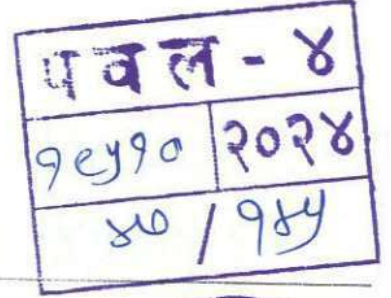 पवल - ४
१९५१० २०२४
४७ / १४५